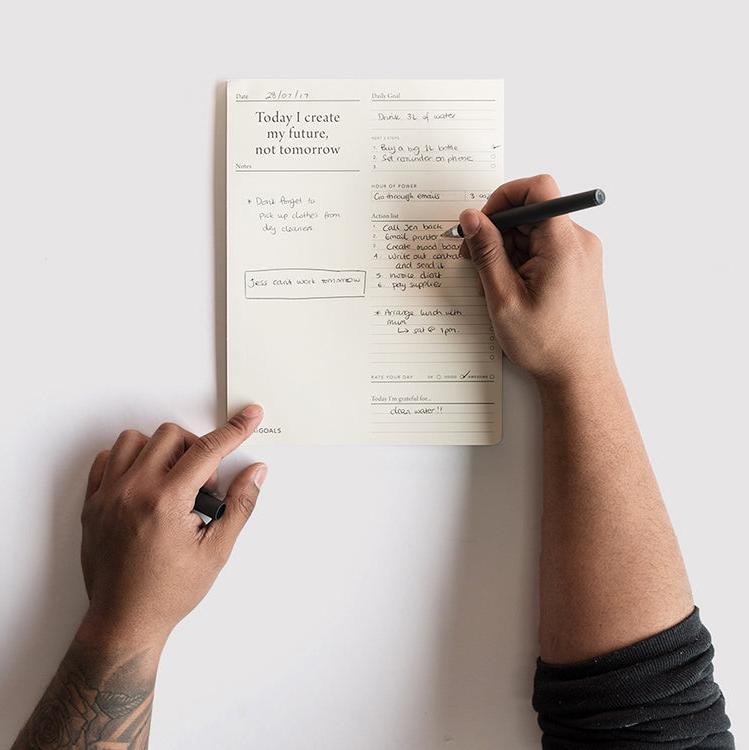 Date 28/07/17
Today I create
my future,
not tomorrow
Notes
* Don't forget to
pick up clothes from
dry cleaners.
Jess can't work tomorrow
GOALS
Daily Goal
Drink 3L of water
NEXT 3 STEPS
1. Buy a big 1L bottle
2. Set reminder on phone
3.
HOUR OF POWER
Go through emails 3
Action list
1. Call Jen back
2. Email printer
3. Create mood board
4. Write out
and send it
5. invoice client
6. pay supplier
* Arrange lunch with
mum
↳ sat @ 1pm.
RATE YOUR DAY OK GOOD AWESOME
Today I'm grateful for...
clean water!!